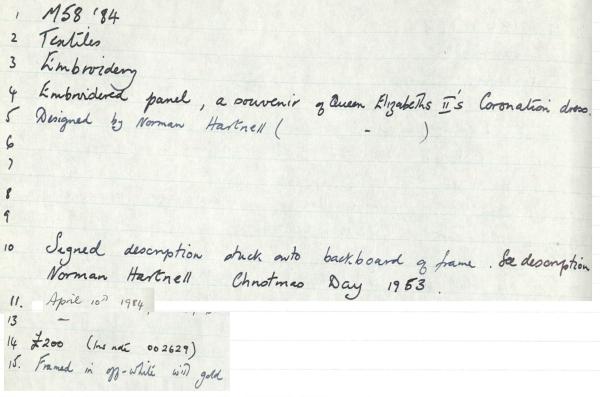 1 M58 '84
2 Textiles
3 Embroidery
4 Embroidered panel, a souvenir of Queen Elizabeths II's Coronation dress.
5 Designed by Norman Hartnell ( - )
6
7
8
9
10 Signed description stuck onto backboard of frame. See description
Norman Hartnell Christmas Day 1953.
11. April 10th 1984
13 -
14 £200 (Ins note 002629)
15. Framed in off-white with gold